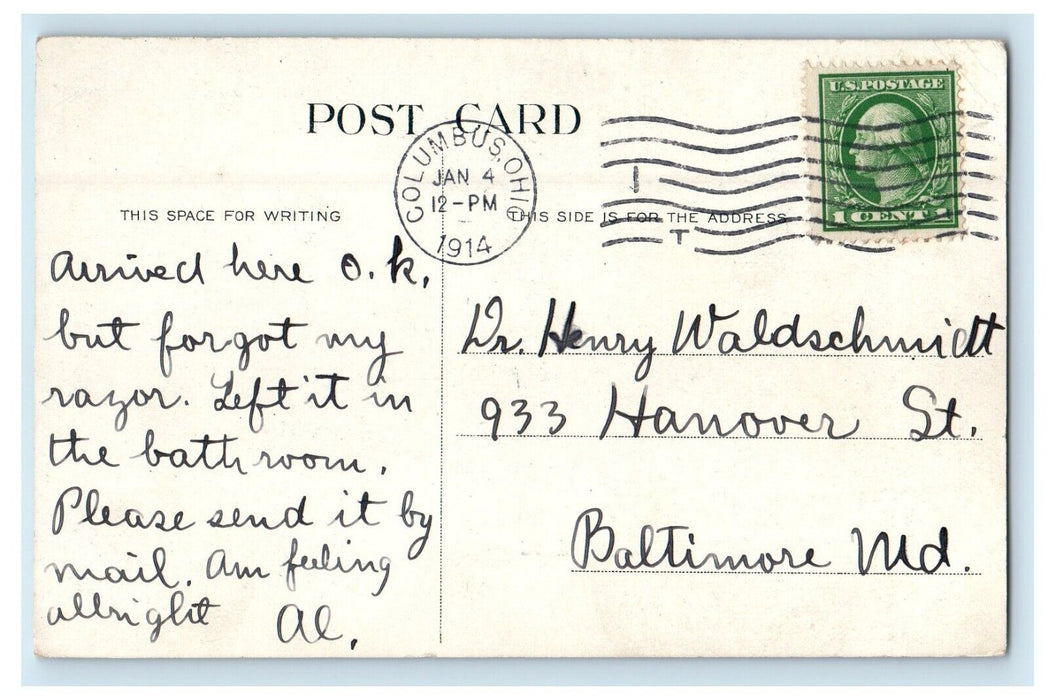 POST CARD
U.S. POSTAGE
1 CENT
COLUMBUS, OHIO
JAN 4
12-PM
1914
1
T
THIS SPACE FOR WRITING
THIS SIDE IS FOR THE ADDRESS
Arrived here O.K.
but forgot my
razor. Left it in
the bathroom.
Please send it by
mail. Am feeling
allright Al.
Dr. Henry Waldschmidt
933 Hanover St.
Baltimore Md.